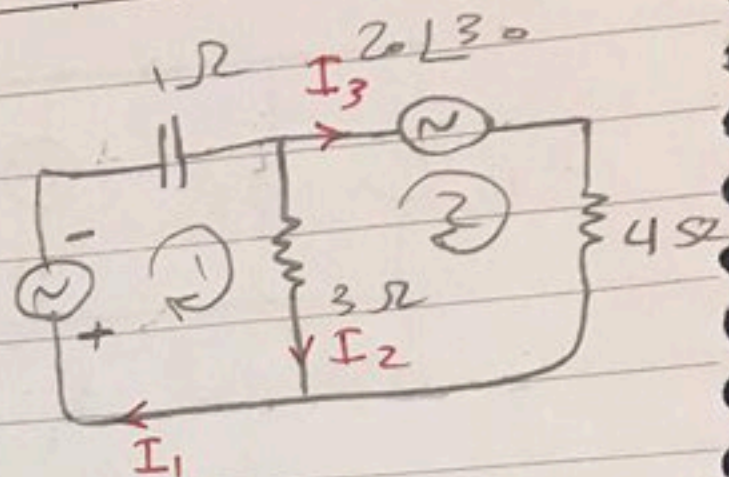 1Ω
20∠30
I3
-
+
1
2
3Ω
4Ω
I2
I1